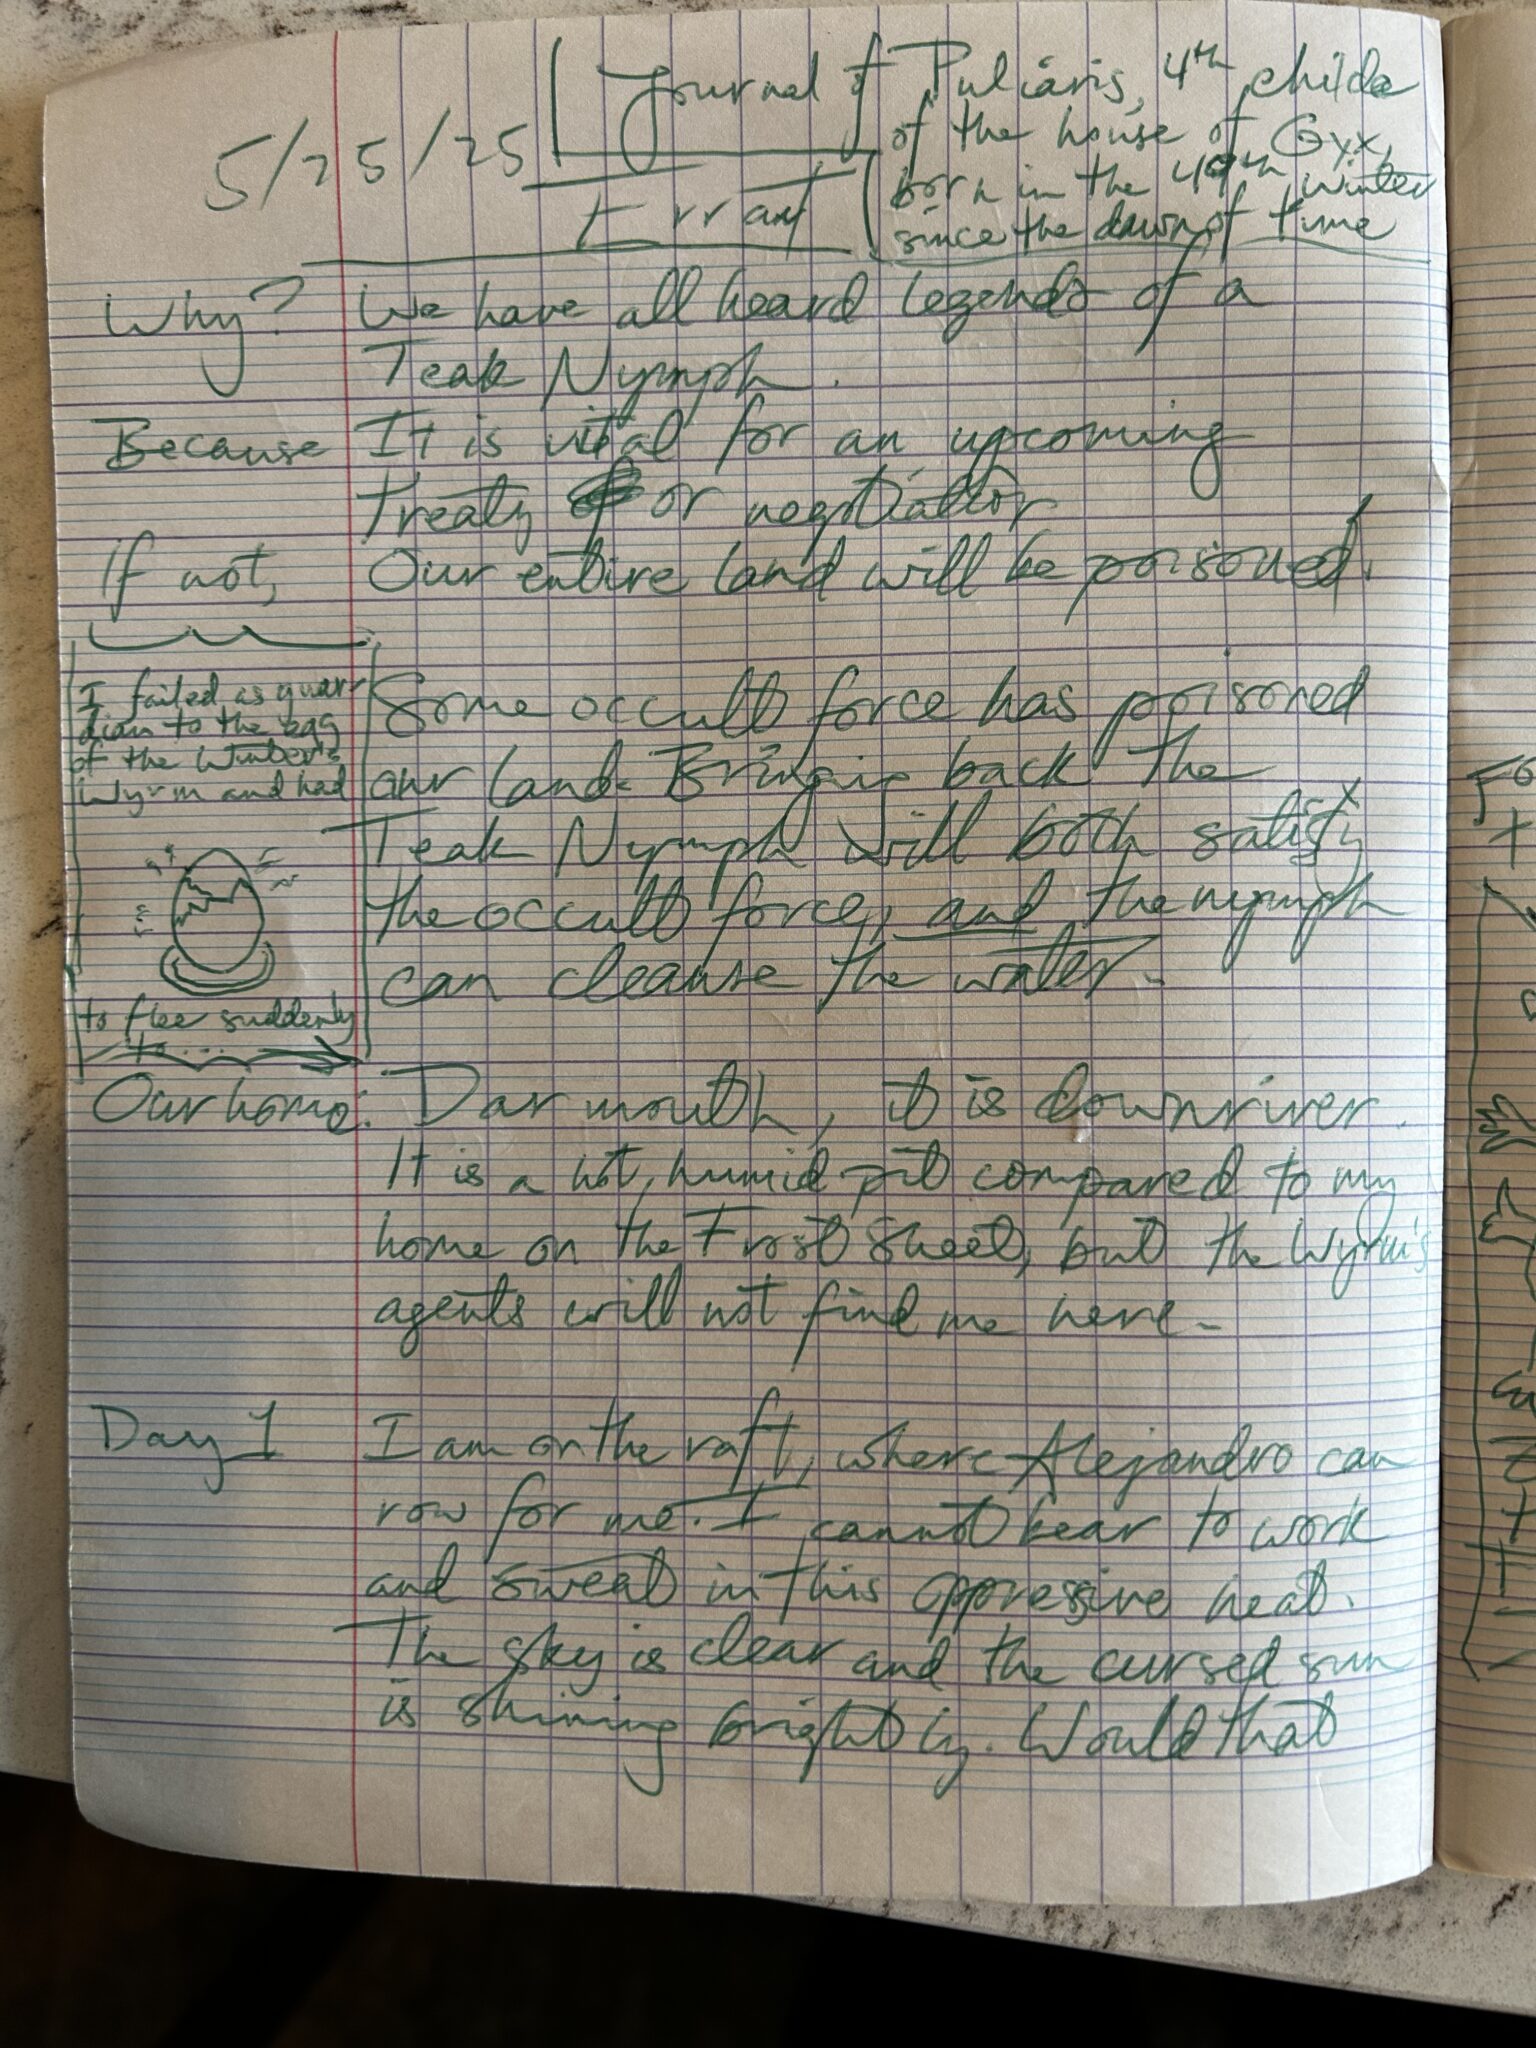 5/25/25
Journal of
Errant
Puliaris, 4th childe
of the house of Gyx,
born in the 49th winter
since the dawn of time
Why? We have all heard legends of a
Teak Nymph.
Because It is vital for an upcoming
treaty or negotiation
If not, Our entire land will be poisoned.
I failed as guar-
dian to the egg
of the Winter's
Wyrm and had
to flee suddenly
to...
Some occult force has poisoned
our land. Bringing back the
Teak Nymph will both satisfy
the occult force, and the nymph
can cleanse the water.
Our home: Darmouth, it is downriver.
It is a hot, humid pit compared to my
home on the Frost Sheet, but the Wyrm's
agents will not find me here.
Day 1 I am on the raft, where Alejandro can
row for me. I cannot bear to work
and sweat in this oppressive heat.
The sky is clear and the cursed sun
is shining brightly. Would that